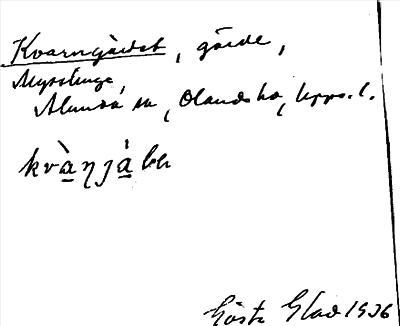 Kvarngärdet, gärde,
Mysslinge,
Alunda sn, Olands hd, Upps. l.
kvàŋjá
Gösta Glad 1936